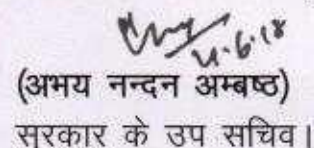 4.6.18
(अभय नन्दन अम्बष्ठ)
सरकार के उप सचिव।